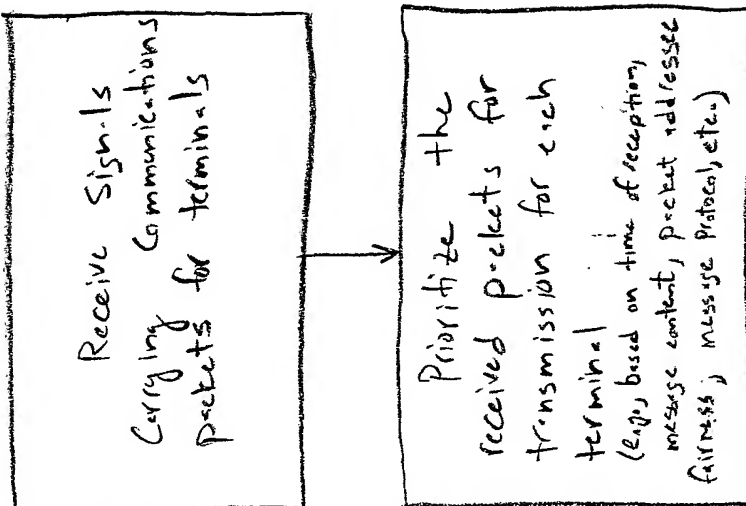 Receive Signals
Carrying Communications
packets for terminals
Prioritize the
received packets for
transmission for each
terminal
(e.g., based on time of reception,
message content, packet addressee
fairness, message protocol, etc.)